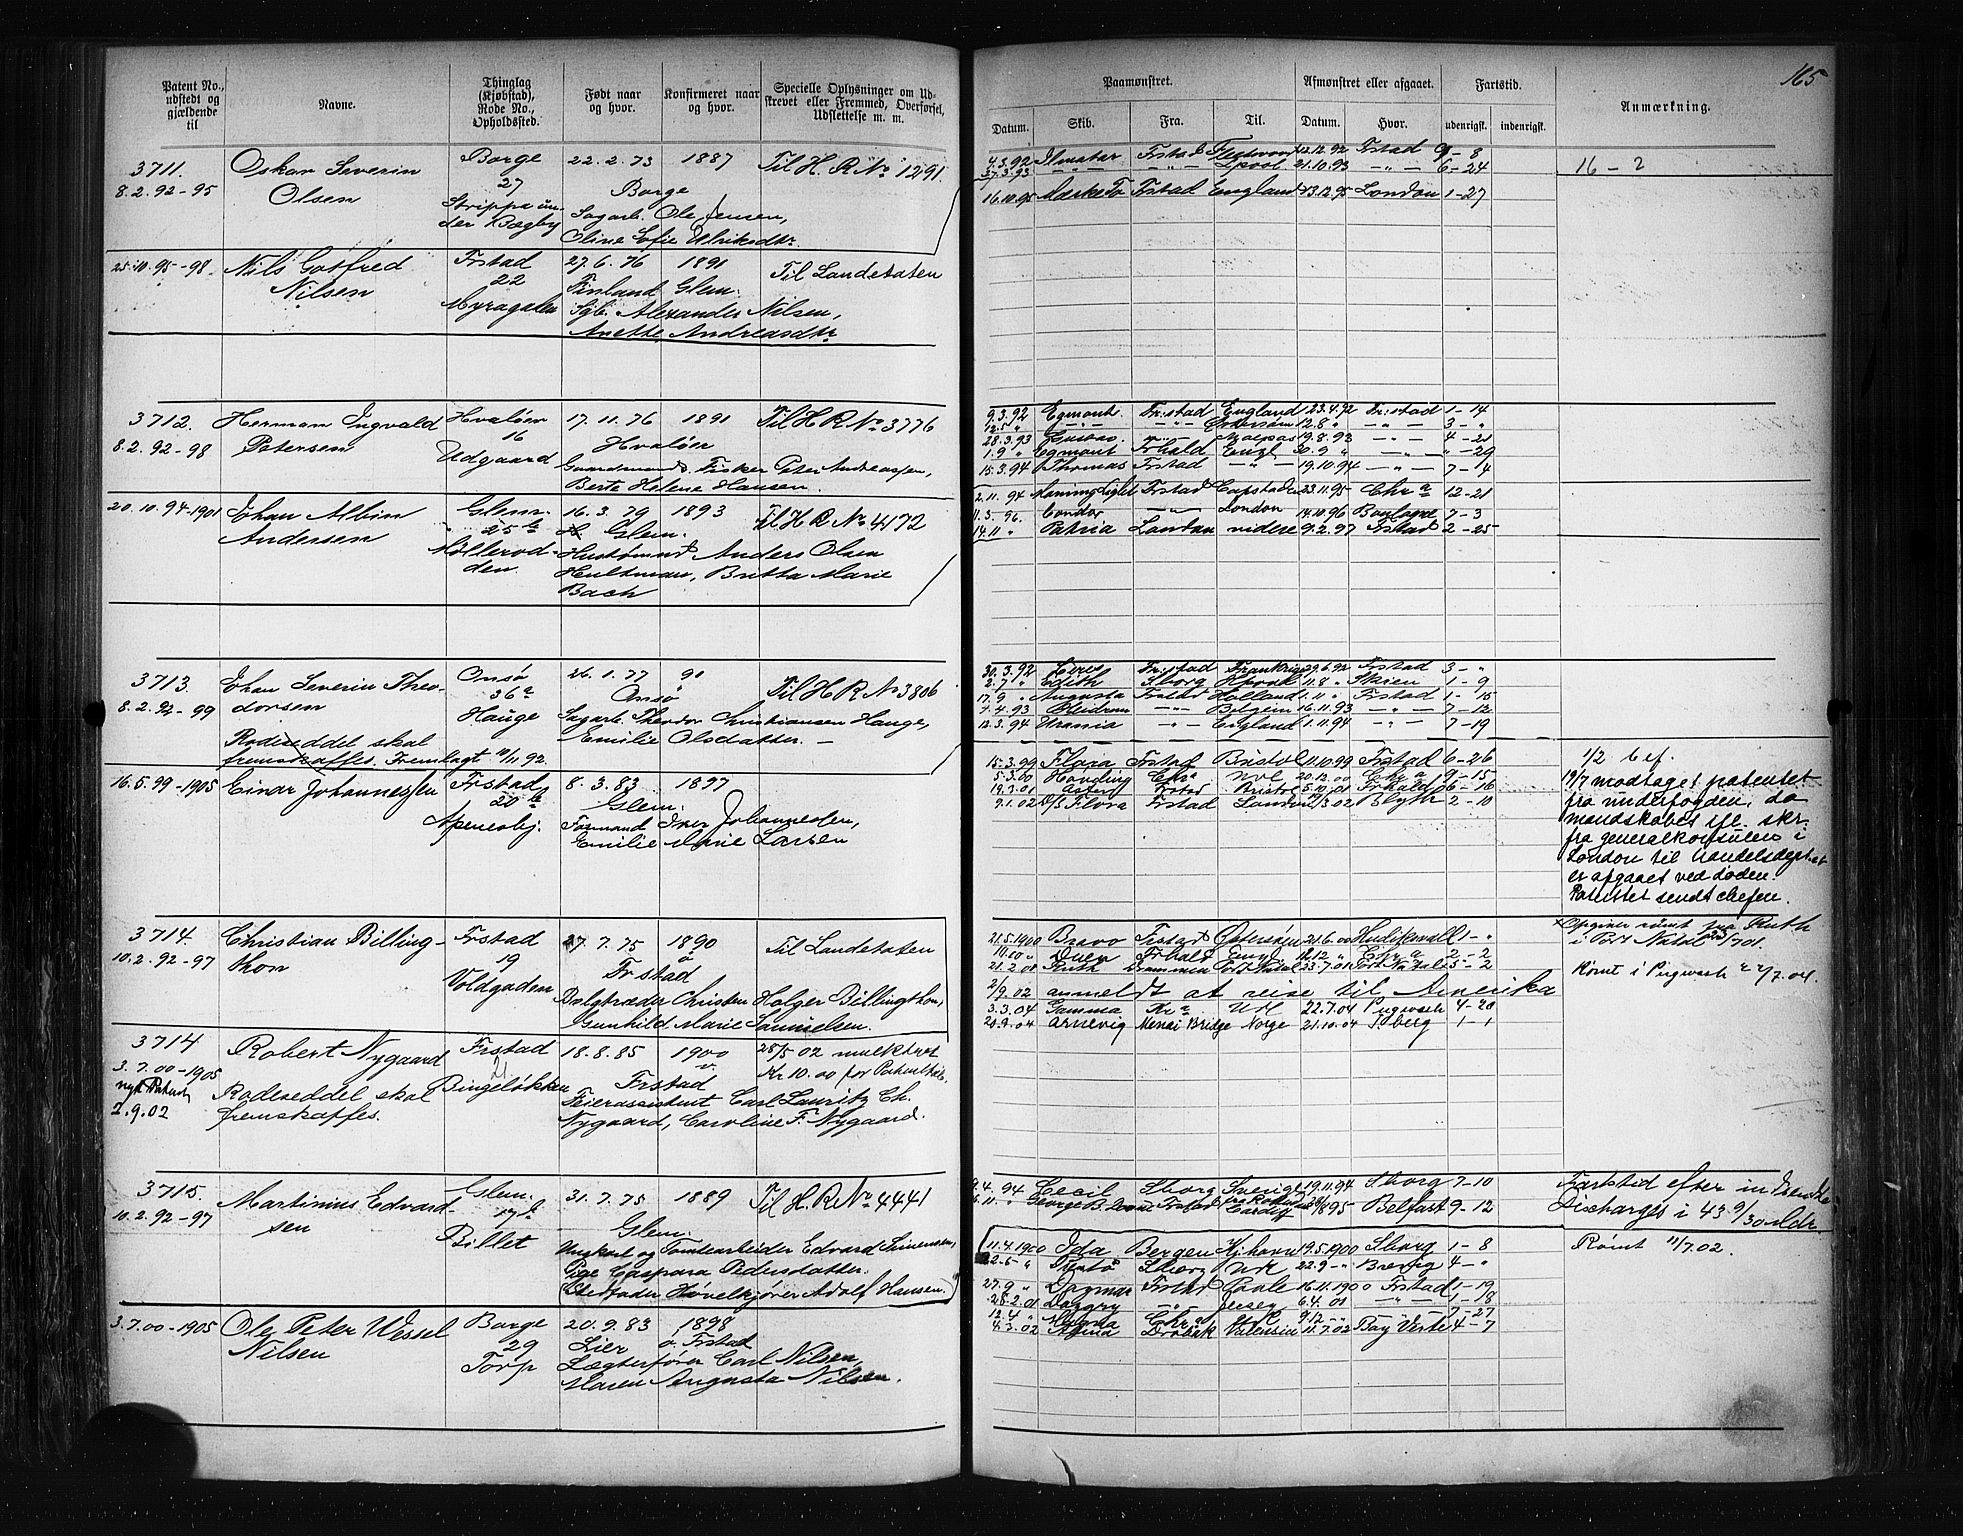 165
Patent No., udstedt og gjældende til
Navne.
Thinglag (Kjøbstad), Rode No., Opholdssted.
Født naar og hvor.
Konfirmeret naar og hvor.
Specielle Oplysninger om Udskrevet eller Fremmed, Overførsel, Udslettelse m. m.
Paamønstret.
Afmønstret eller afgaaet.
Fartstid.
Anmærkning.
Datum. Skib. Fra. Til. Datum. Hvor. udenrigst. indenrigst.
3711. Oskar Severin Borge 22. 2. 73 1887 Til H. R No 1291.
8. 2. 92-95 Olsen 27 Borge
Strippe un- Sagarb. Ole Jensen,
der Bøgby Oline Sofie Ulriksdtr.
Frstad 12.12.92 Frstad 9-8
21.10.93 6-24
16-2
16.10.95 Frstad England 13.12.95 London 1-27
25.10.95-98. Nils Gotfred Frstad 27. 6. 76 1891 Til Landetaten
Nilsen 22 Finland Glem.
Myragaten Sgb. Alexander Nilsen,
Anette Andreasdtr.
3712. Herman Ingvald Hvaløer 17. 11. 76 1891 Til H R No 3776
8. 2. 92-98 Petersen 16 Hvaløer
Udgaard Gaardmand & Fisker Peter Andreassen,
Berte Helene Hansen.
9.3.92 Egmont. Fr.stad England 23.4.92 Fr.stad 1-14
12.8 3-"
28.3.93 19.8.93 4-21
1.9 " Egmont Frhald Engl 30.9 " "-29
15.3.94 Thomas Frstad 19.10.94 7-4
20. 10. 94-1901 Johan Albin Glem. 16. 3. 79 1893 Til H R No 4172
Andersen 25 b Glem.
Møllerod- Hustømand Anders Olsen
den. Hultman, Britta Marie
Bach
2.11. 94 Frstad Capstaden 23.11.95 Chr a 12-21
11.3.96. Condor London 14.10.96 7-3
14.11 " Patria London videre 9.2.97 Frstad 2-25
3713. Johan Severin Theo- Onsø 26. 1. 77 91 Til H R No 3806
8. 2. 92-99 dorsen 36 a Onsø
Hauge Sagarb. Theodor Christiansen Hauge,
Rodeseddel skal Emilie Olsdatter.
fremskaffes. Fremlagt 10/11 92.
30.3.92 Ceres Fr.stad Frankrig 29.6.92 Frstad 3-"
2.7 " Edith Sborg 11.8 " Skien 1-9
17.9 " Augusta Frstad Holland 1.11 " Frstad 1-15
7.4.93 Belgien 16.11.93 7-12
12.3.94 Urania England 1.11.94 7-19
16. 5. 99-1905 Einar Johannessen Frstad 8. 3. 83 1897
20 b Glem.
Apenesbj. Formand Iver Johannesen,
Emilie Marie Larsen
15.3.99 Flora Frstad Bristol 11.10.99 Frstad 6-26
5.3.00 Høvding Chr a 20.12.00 Chr a 9-15
19.3.01 Frstad Bristol 5.10.01 Frhald 6-16
9.1.02 D/s Flora Frstad London 3.02 Blyth 2-10
19/7 modtaget patentet
fra underfogden, da
mandskabet ifl. skr.
fra generalkonsulen i
London til handelsdept.et
er afgaaet ved døden.
Patentet sendt chefen.
3714. Christian Billing- Frstad 27. 7. 75 1890 Til Landetaten
10. 2. 92-97 thon 19 Frstad
Voldgaden Bølgtræder Christen Holger Billingthon,
Gunhild Marie Samuelsen.
3714 Robert Nygaard Frstad 18. 8. 85 1900 28/5 02 mulktert
3. 7. 00-1905 21 Frstad Kr 10.00 for Patenttab.
nyt Patent Rodeseddel skal Bingeløkken Feierassistent Carl Lauritz Ch.
2. 9. 02 fremskaffes. Nygaard, Caroline F. Nygaard.
21.5.1900 Bravo Frstad Østersøen 21.6.00 Hudiksvall 1-"
Frhald Engl. 16.12 " Chr a 2-2
21.2.01 Ruth Drammen Port Natal 23.7.01 Port Natal 5-2
2/9.02 anmeldt at reise til Amerika
3.3.04 Gamma Kr a 22.7.04 Pugwash 4-20
20.9.04 Arnevig Menai Bridge Norge 21.10.04 Sberg 1-1
Opgiver rømt fra Ruth
i Port Natal 23/7 01.
Rømt i Pugwash 22/7.04.
3715. Martinius Edvard- Glem. 31. 7. 75 1889 Til H. R No 4441
10. 2. 92-97 sen 17 b Glem.
Billet Ungkarl og Tomtearbeider Edvard Simensen,
Pige Caspara Pedersdatter.
(Stedfader Høvelkjører Adolf Hansen.)
9.4. 94 Cecil Sborg Sverige 19.11.94 Sborg 7-10
Frstad Cardiff Belfast 9-12
Fartstid efter
Discharges i 43 9/30 mdr.
3. 7. 00-1905 Ole Peter Wessel Borge 20. 9. 83 1898
Nilsen 29 Lier ø. Frstad
Torp Lægterfører Carl Nilsen,
Maren Augusta Nilsen.
11.4.1900 Ida Bergen Kjøbhavn 19.5.1900 Sborg 1-8
22.9 " Brevig 4-"
27.9 " Dagmar Frstad Poole 16.11.1900 Frstad 1-19
28.2.01 Daggry Jersey 6.4.01 1-8
12.4 " Chr a 7-27
4.3.02 Drøbak Valensia 11.7.02 Bay Verte 4-7
Rømt 11/7.02.